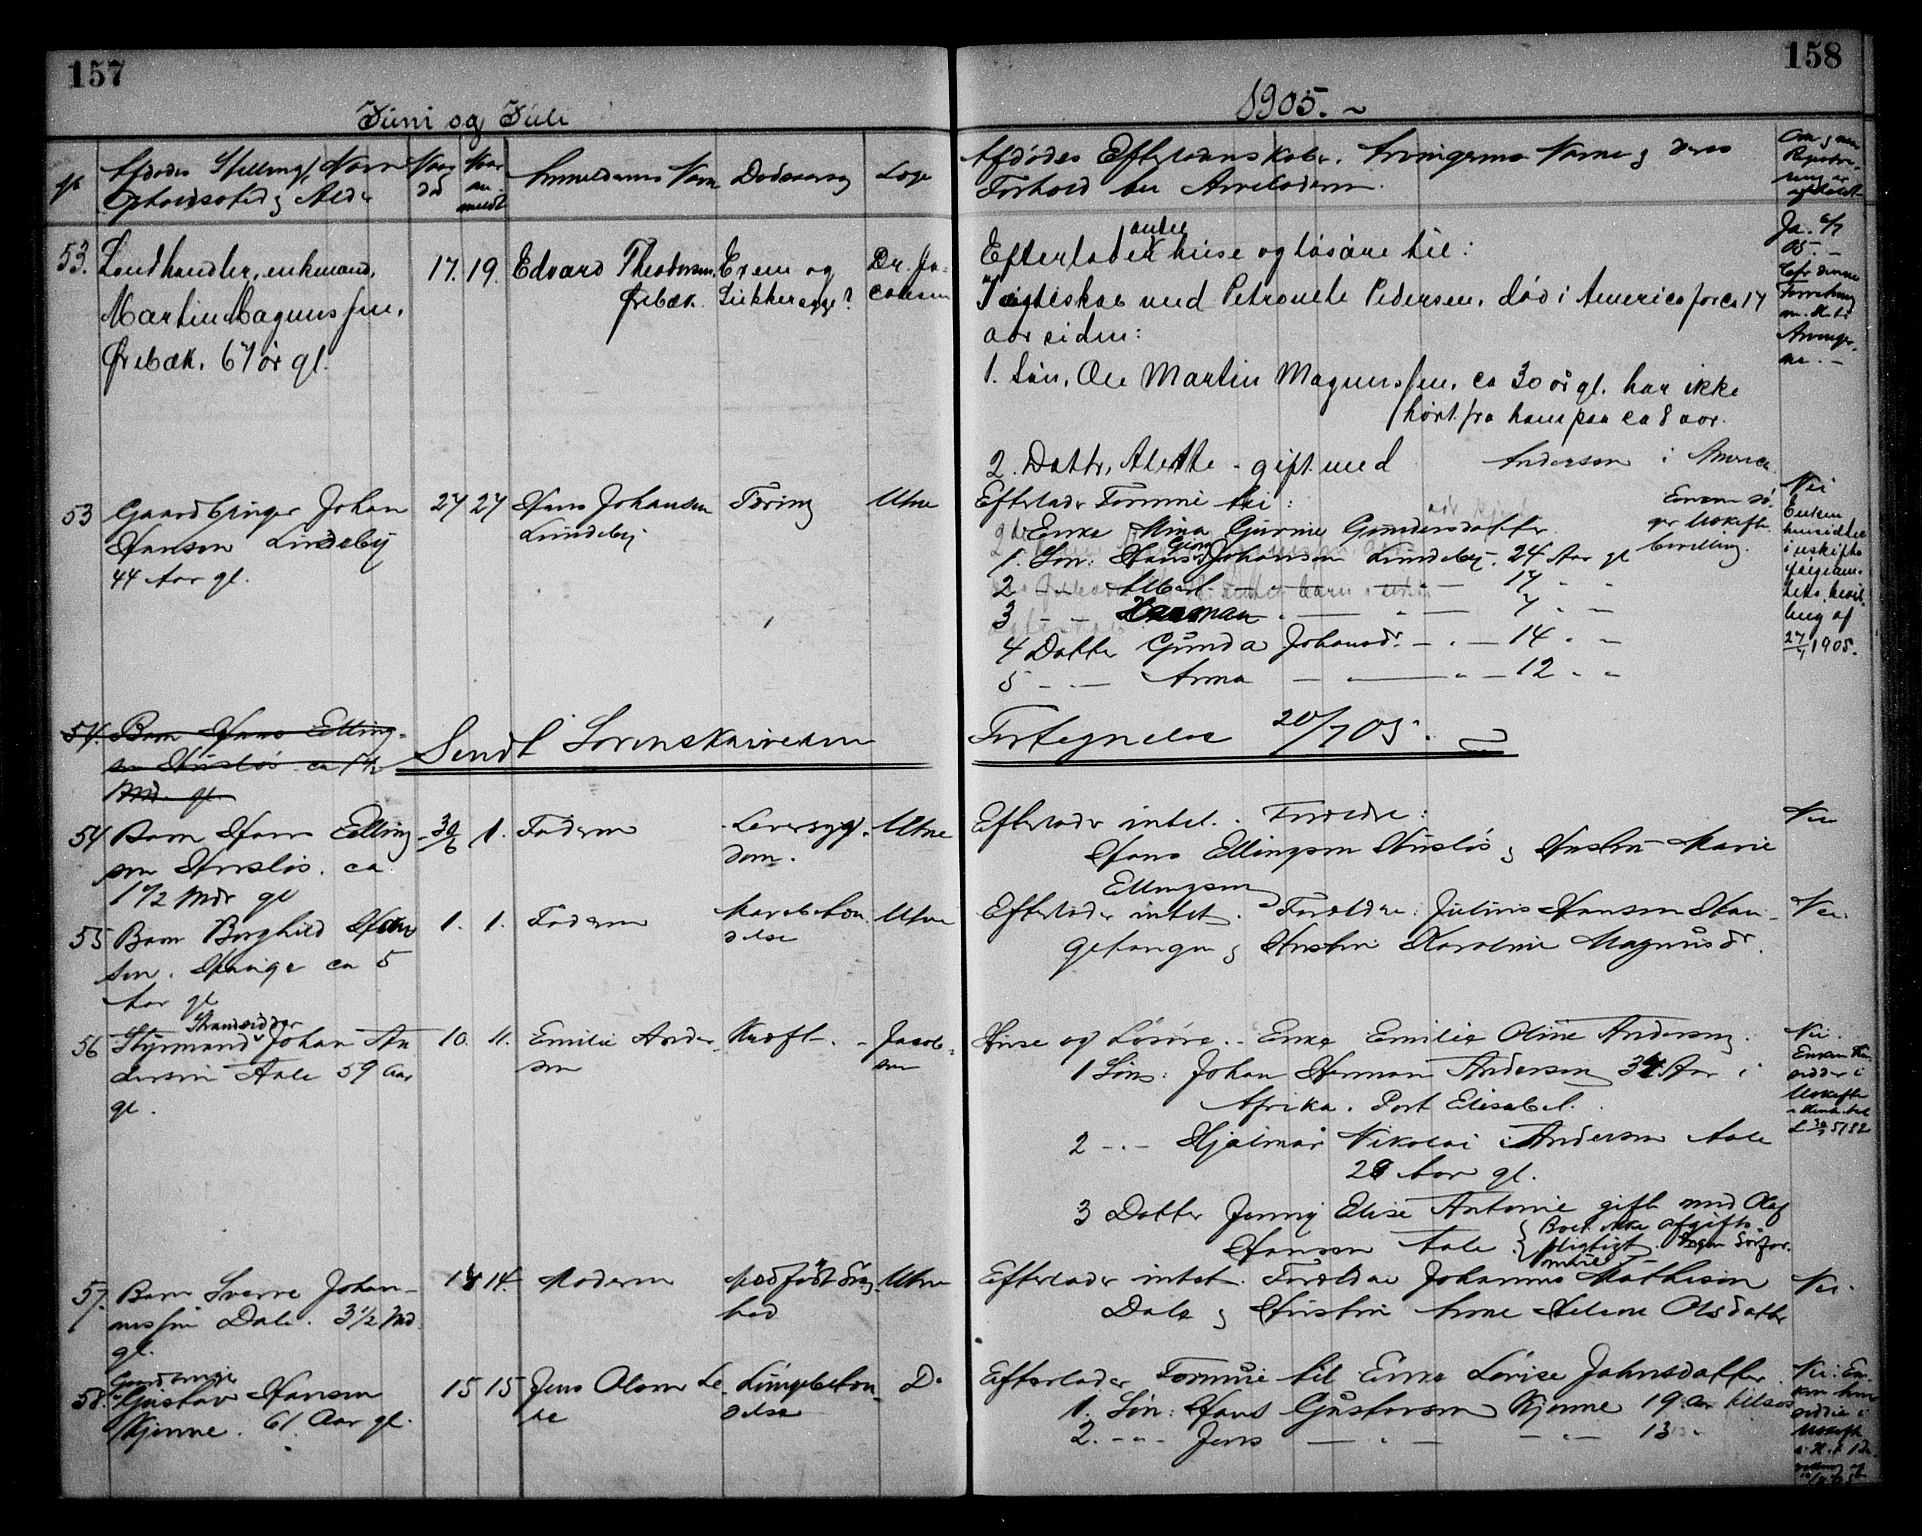 157
Juni og Juli
Afdødes Stilling, Navn
Opholdssted, Alder
Naar
død
Naar
an-
meldt
Anmelderens Navn
Dødsaarsag
Læge
53. Landhandler, enkemand,
Martin Magnussen,
Ørebæk. 67 år gl.
17. 19.
Edvard Theodorsen,
Ørebæk.
og
Sukkersyge?
Dr. Ja-
cobsen
53 Gaardbruger Johan
Hansen Lundeby
44 Aar gl.
27 27
Hans Johansen
Lundeby
Tæring
Utne
54. Barn Hans Elling-
sen Husløs ca 1 1/2
Md. gl.
Sendt Sorenskriveren
54 Barn Hans Elling
sen Husløs. ca
1 1/2 Mdr gl
30/6 1.
Faderen
Leversyg-
dom.
Utne
55 Barn Borghild Han
sen. Hauge ca 5
Aar gl
1. 1.
Faderen
betæn
delse
Utne
56 Styrmand Strandsidder Johan An
dersen Aale 59 Aar
gl.
10. 11.
Emilie Ander
sen
Kræft.
Jacob-
sen
57. Barn Sverre Johan-
nessen Dale. 3 1/2 Md.
gl.
14 14.
Moderen
Medfødt Svag
hed
Utne
58. Gaardbruger
Gustav Hansen
Kjenne. 61 Aar gl.
15 15
Jens Olsen Le
ie
Lungebetæn-
delse
Do
158
1905.
Afdødes Efterladenskaber. Arvingernes Navne, deres
Forhold til Arveladeren.
Efterlader andel huse og løsøre til:
I ægteskab med Petronele Pedersen, død i America for ca 17
aar siden:
1. Søn, Ole Martin Magnussen, ca 30 år gl. har ikke
hørt fra ham paa ca 8 aar.
2. Datter, Alette - gift med Anderson i America
Ja. 6/7
05.
Nei
Efterlader Formue til:
Enke Mina Gurine Gundersdatter
1. Søn: Hans Georg Johansen Lundeby. 24 Aar gl
2 - - Albert - - 17 - -
3 - - Herman - - 7 - -
4 Datter Gunda Johansdr. - - 14 - -
5 - - Anna - - 12 - -
Enken sø-
ger Uskifte
bevilling.
Enken
hensidder
i uskifte
27/7 1905.
Fortegnelse 20/7 05.
Efterlader intet. Forældre:
Hans Ellingsen Husløs, Hustru Marie
Ellingsen
Nei
Efterlader intet. Forældre: Julius Hansen Hau-
gefanger, Hustru Karoline Magnusdr.
Nei.
Huse og Løsøre. Enke Emilie Oline Andersen.
1 Søn: Johan Herman Andersen 34 Aar i
Afrika. Port Elisabet.
2 - - Hjalmar Nikolai Andersen Aale
28 Aar gl.
3 Datter Jenny Elise Antonie gift med Olaf
Hansen Aale
Boet ikke afgifts-
pligtigt. Ingen
Nei.
Enken hen
sidder i
Uskifte
Efterlader intet. Forældre Johannes Mathisen
Dale, Hustru Anne Helene Olsdatter
Nei.
Efterlader Formue til Enke Lovise Jahnsdatter.
1. Søn: Hans Gustavsen Kjenne 19 Aar tilsøs
2. - - Jens - - 13 "
Nei: En-
ken hen
sidder i
Uskifte